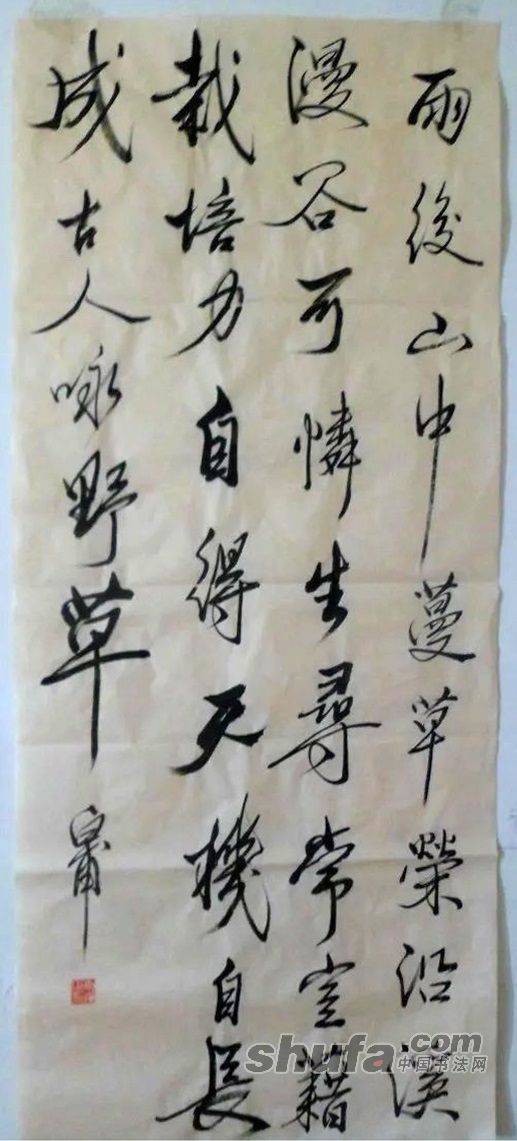 雨後山中蔓草榮沿溪
漫谷可憐生尋常豈藉
栽培力自得天機自長
成古人咏野草
shufa.com
中国书法网